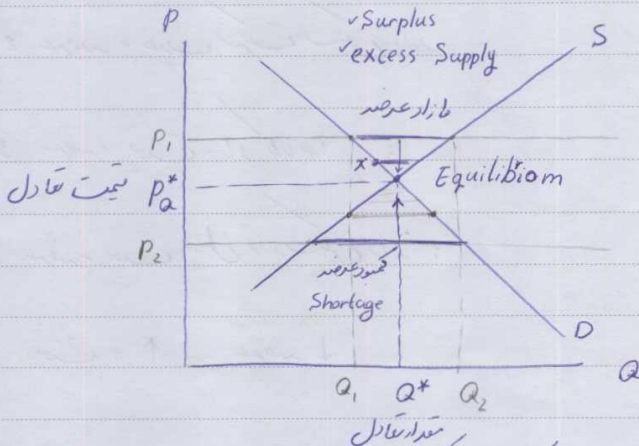 P
✓ Surplus
✓ excess Supply
S
مازاد عرضه
P₁
x
Equilibiom
قیمت تعادل
P*
Q
P₂
کمبود عرضه
Shortage
D
Q
Q₁
Q*
Q₂
مقدار تعادل